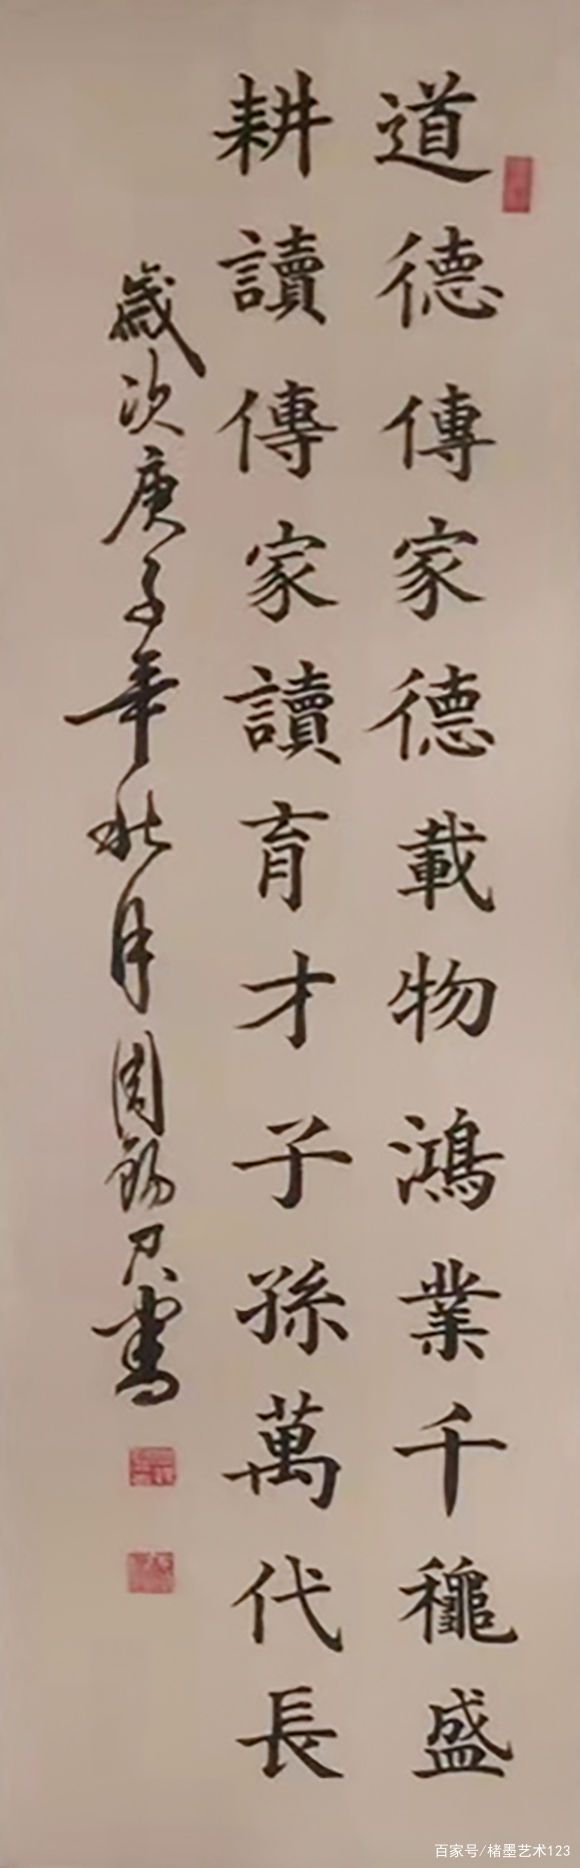 道德傳家德載物鴻業千龝盛
耕讀傳家讀育才子孫萬代長
歲次庚子年秋月周錫君書
百家号/楮墨艺术123